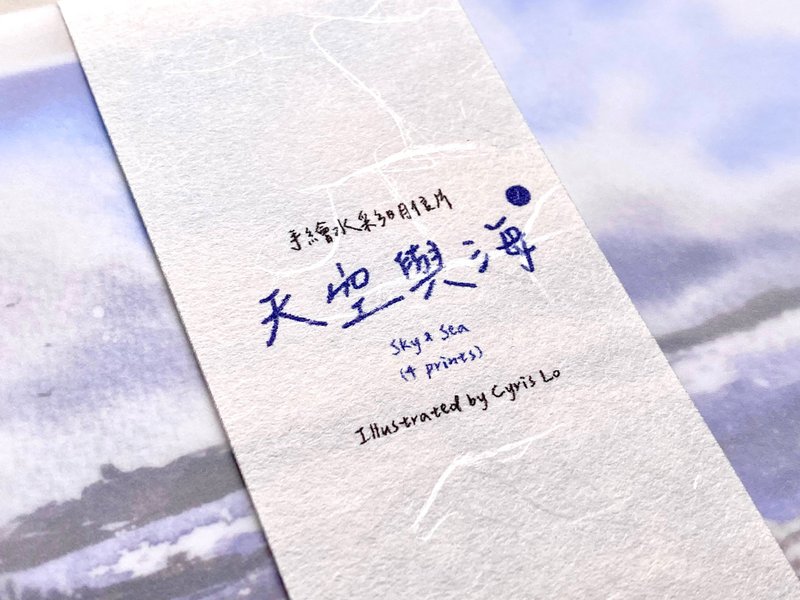 手繪水彩明信片
天空與海
Sky & Sea
(4 prints)
Illustrated by Cyris Lo